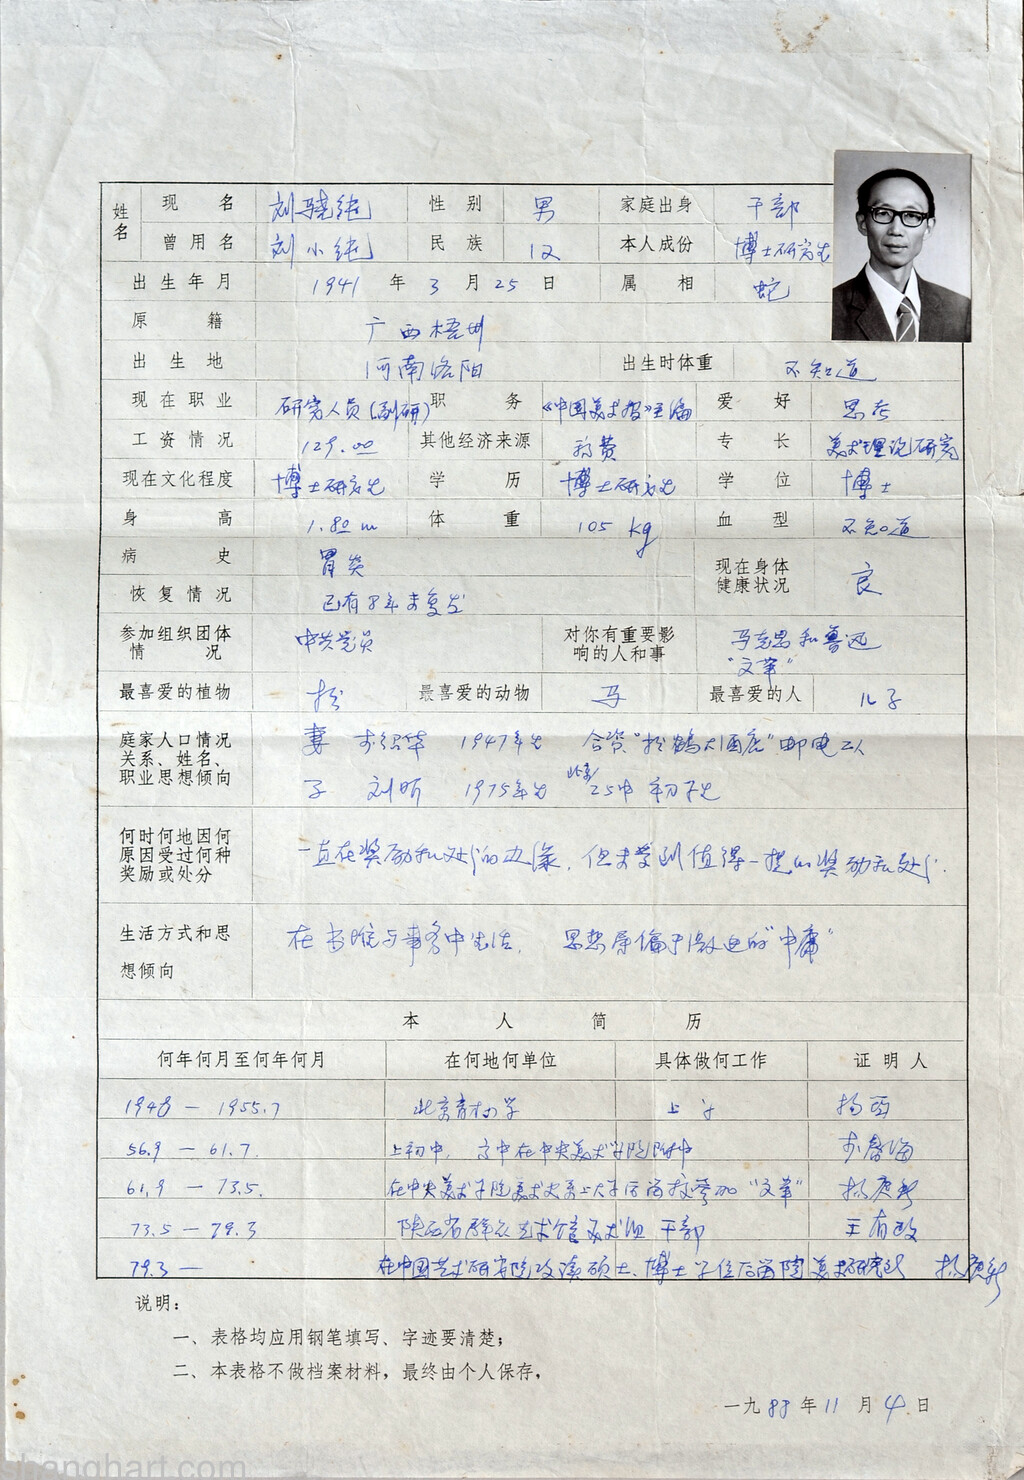 姓名 现名 刘骁纯 性别 男 家庭出身 干部
曾用名 刘小纯 民族 汉 本人成份 博士研究生
出生年月 1941年3月25日 属相 蛇
原籍 广西梧州
出生地 河南洛阳 出生时体重 不知道
现在职业 研究人员(副研) 职务 《中国美术报》主编 爱好 思考
工资情况 129.00 其他经济来源 稿费 专长 美术理论研究
现在文化程度 博士研究生 学历 博士研究生 学位 博士
身高 1.80 m 体重 105 kg 血型 不知道
病史 胃炎 现在身体健康状况 良
恢复情况 已有8年未复发
参加组织团体情况 中共党员 对你有重要影响的人和事 马克思和鲁迅
"文革"
最喜爱的植物 松 最喜爱的动物 马 最喜爱的人 儿子
庭家人口情况
关系、姓名、
职业思想倾向
妻 1947年生 合资"松鹤大酒店"邮电工人
子 刘昕 1975年生 北京25中 初下生
何时何地因何
原因受过何种
奖励或处分
一直在奖励和处分的边缘,但未受到值得一提的奖励和处分.
生活方式和思
想倾向
在书堆与事务中生活, 思想属偏于激进的"中庸"
本人简历
何年何月至何年何月 在何地何单位 具体做何工作 证明人
1948 — 1955.7 北京 上学
56.9 — 61.7. 上初中,高中在中央美术学院附中
61.9 — 73.5. 在中央美术学院美术史系上大学后留校参加"文革"
73.5 — 79.3 陕西省群众艺术馆美术组 干部 王有政
79.3 — 在中国艺术研究院攻读硕士、博士学位后留院美术研究所
说明:
一、表格均应用钢笔填写、字迹要清楚;
二、本表格不做档案材料,最终由个人保存,
一九88年11月4日
shanghart.com